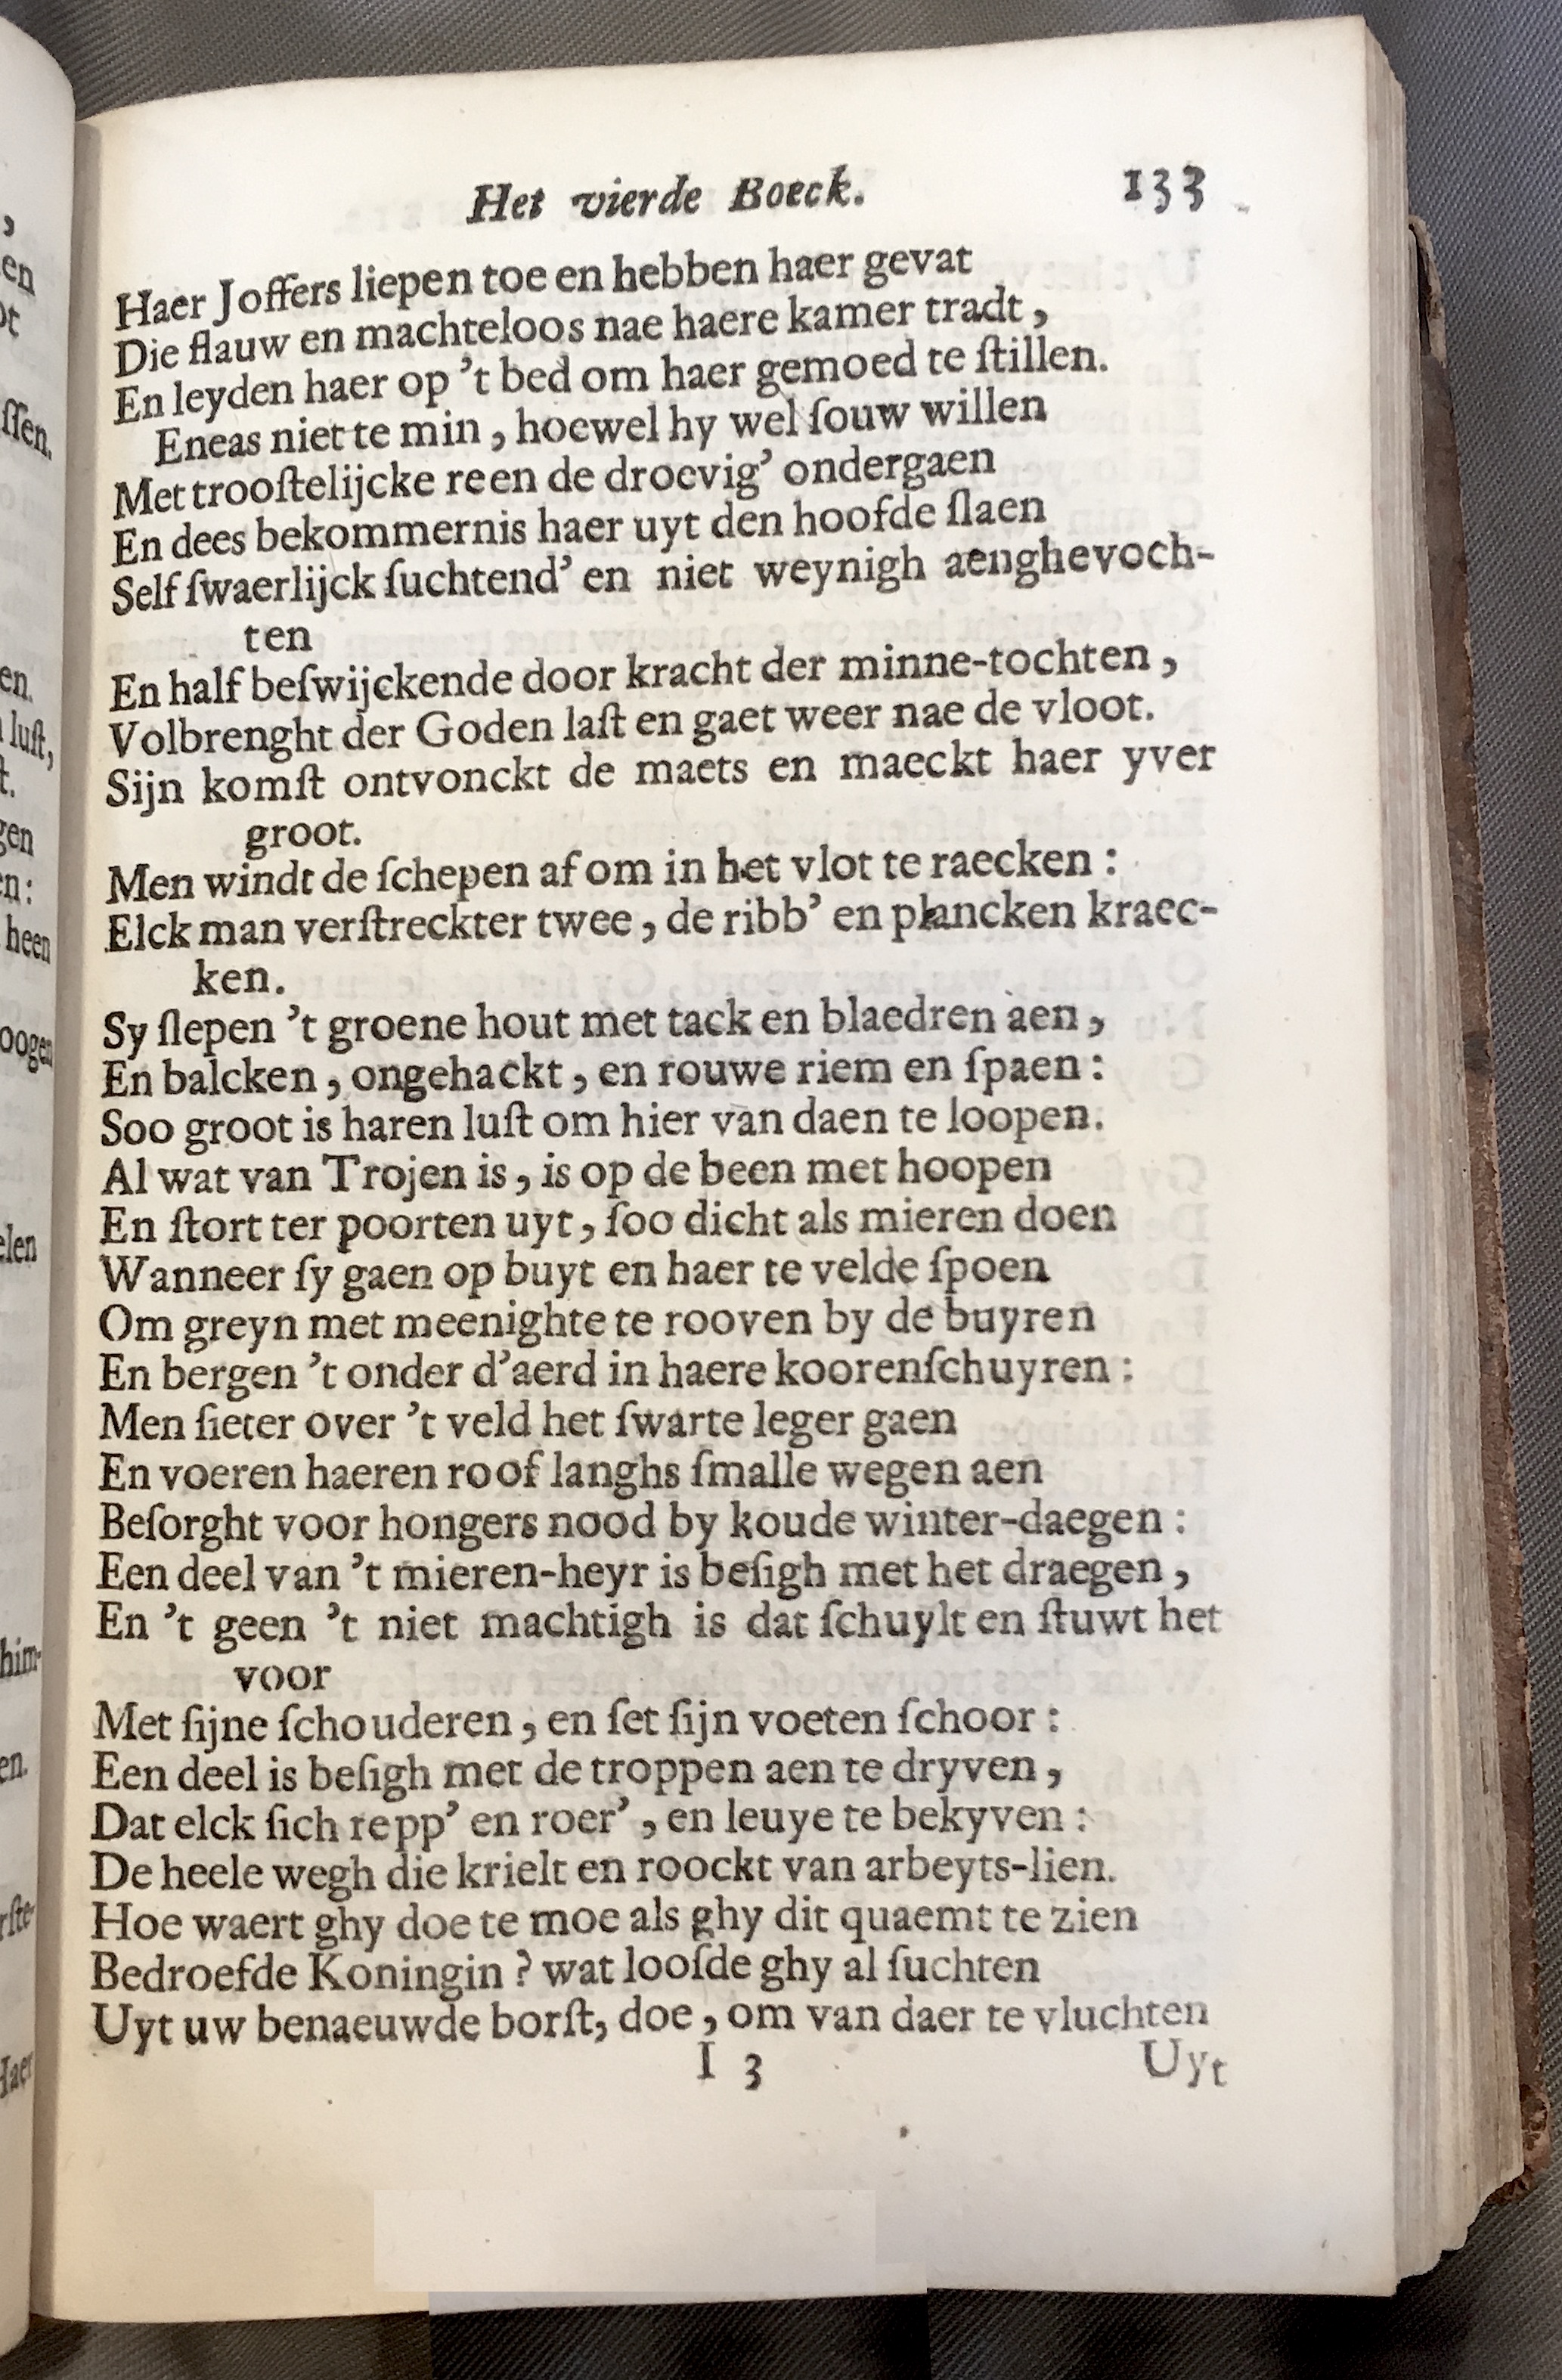 Het vierde Boeck. 133
Haer Joffers liepen toe en hebben haer gevat
Die flauw en machteloos nae haere kamer tradt,
En leyden haer op ’t bed om haer gemoed te ſtillen.
Eneas niet te min, hoewel hy wel ſouw willen
Met trooſtelijcke reen de droevig’ ondergaen
En dees bekommernis haer uyt den hoofde ſlaen
Self ſwaerlijck ſuchtend’ en niet weynigh aenghevoch-
ten
En half beſwijckende door kracht der minne-tochten,
Volbrenght der Goden laſt en gaet weer nae de vloot.
Sijn komſt ontvonckt de maets en maeckt haer yver
groot.
Men windt de ſchepen af om in het vlot te raecken:
Elck man verſtreckter twee, de ribb’ en plancken kraec-
ken.
Sy ſlepen ’t groene hout met tack en blaedren aen,
En balcken, ongehackt, en rouwe riem en ſpaen:
Soo groot is haren luſt om hier van daen te loopen.
Al wat van Trojen is, is op de been met hoopen
En ſtort ter poorten uyt, ſoo dicht als mieren doen
Wanneer ſy gaen op buyt en haer te velde ſpoen
Om greyn met meenighte te rooven by de buyren
En bergen ’t onder d’aerd in haere koorenſchuyren:
Men ſieter over ’t veld het ſwarte leger gaen
En voeren haeren roof langhs ſmalle wegen aen
Beſorght voor hongers nood by koude winter-daegen:
Een deel van ’t mieren-heyr is beſigh met het draegen,
En ’t geen ’t niet machtigh is dat ſchuylt en ſtuwt het
voor
Met ſijne ſchouderen, en ſet ſijn voeten ſchoor:
Een deel is beſigh met de troppen aen te dryven,
Dat elck ſich repp’ en roer’, en leuye te bekyven:
De heele wegh die krielt en roockt van arbeyts-lien.
Hoe waert ghy doe te moe als ghy dit quaemt te zien
Bedroefde Koningin? wat looſde ghy al ſuchten
Uyt uw benaeuwde borſt, doe, om van daer te vluchten
I 3 Uyt